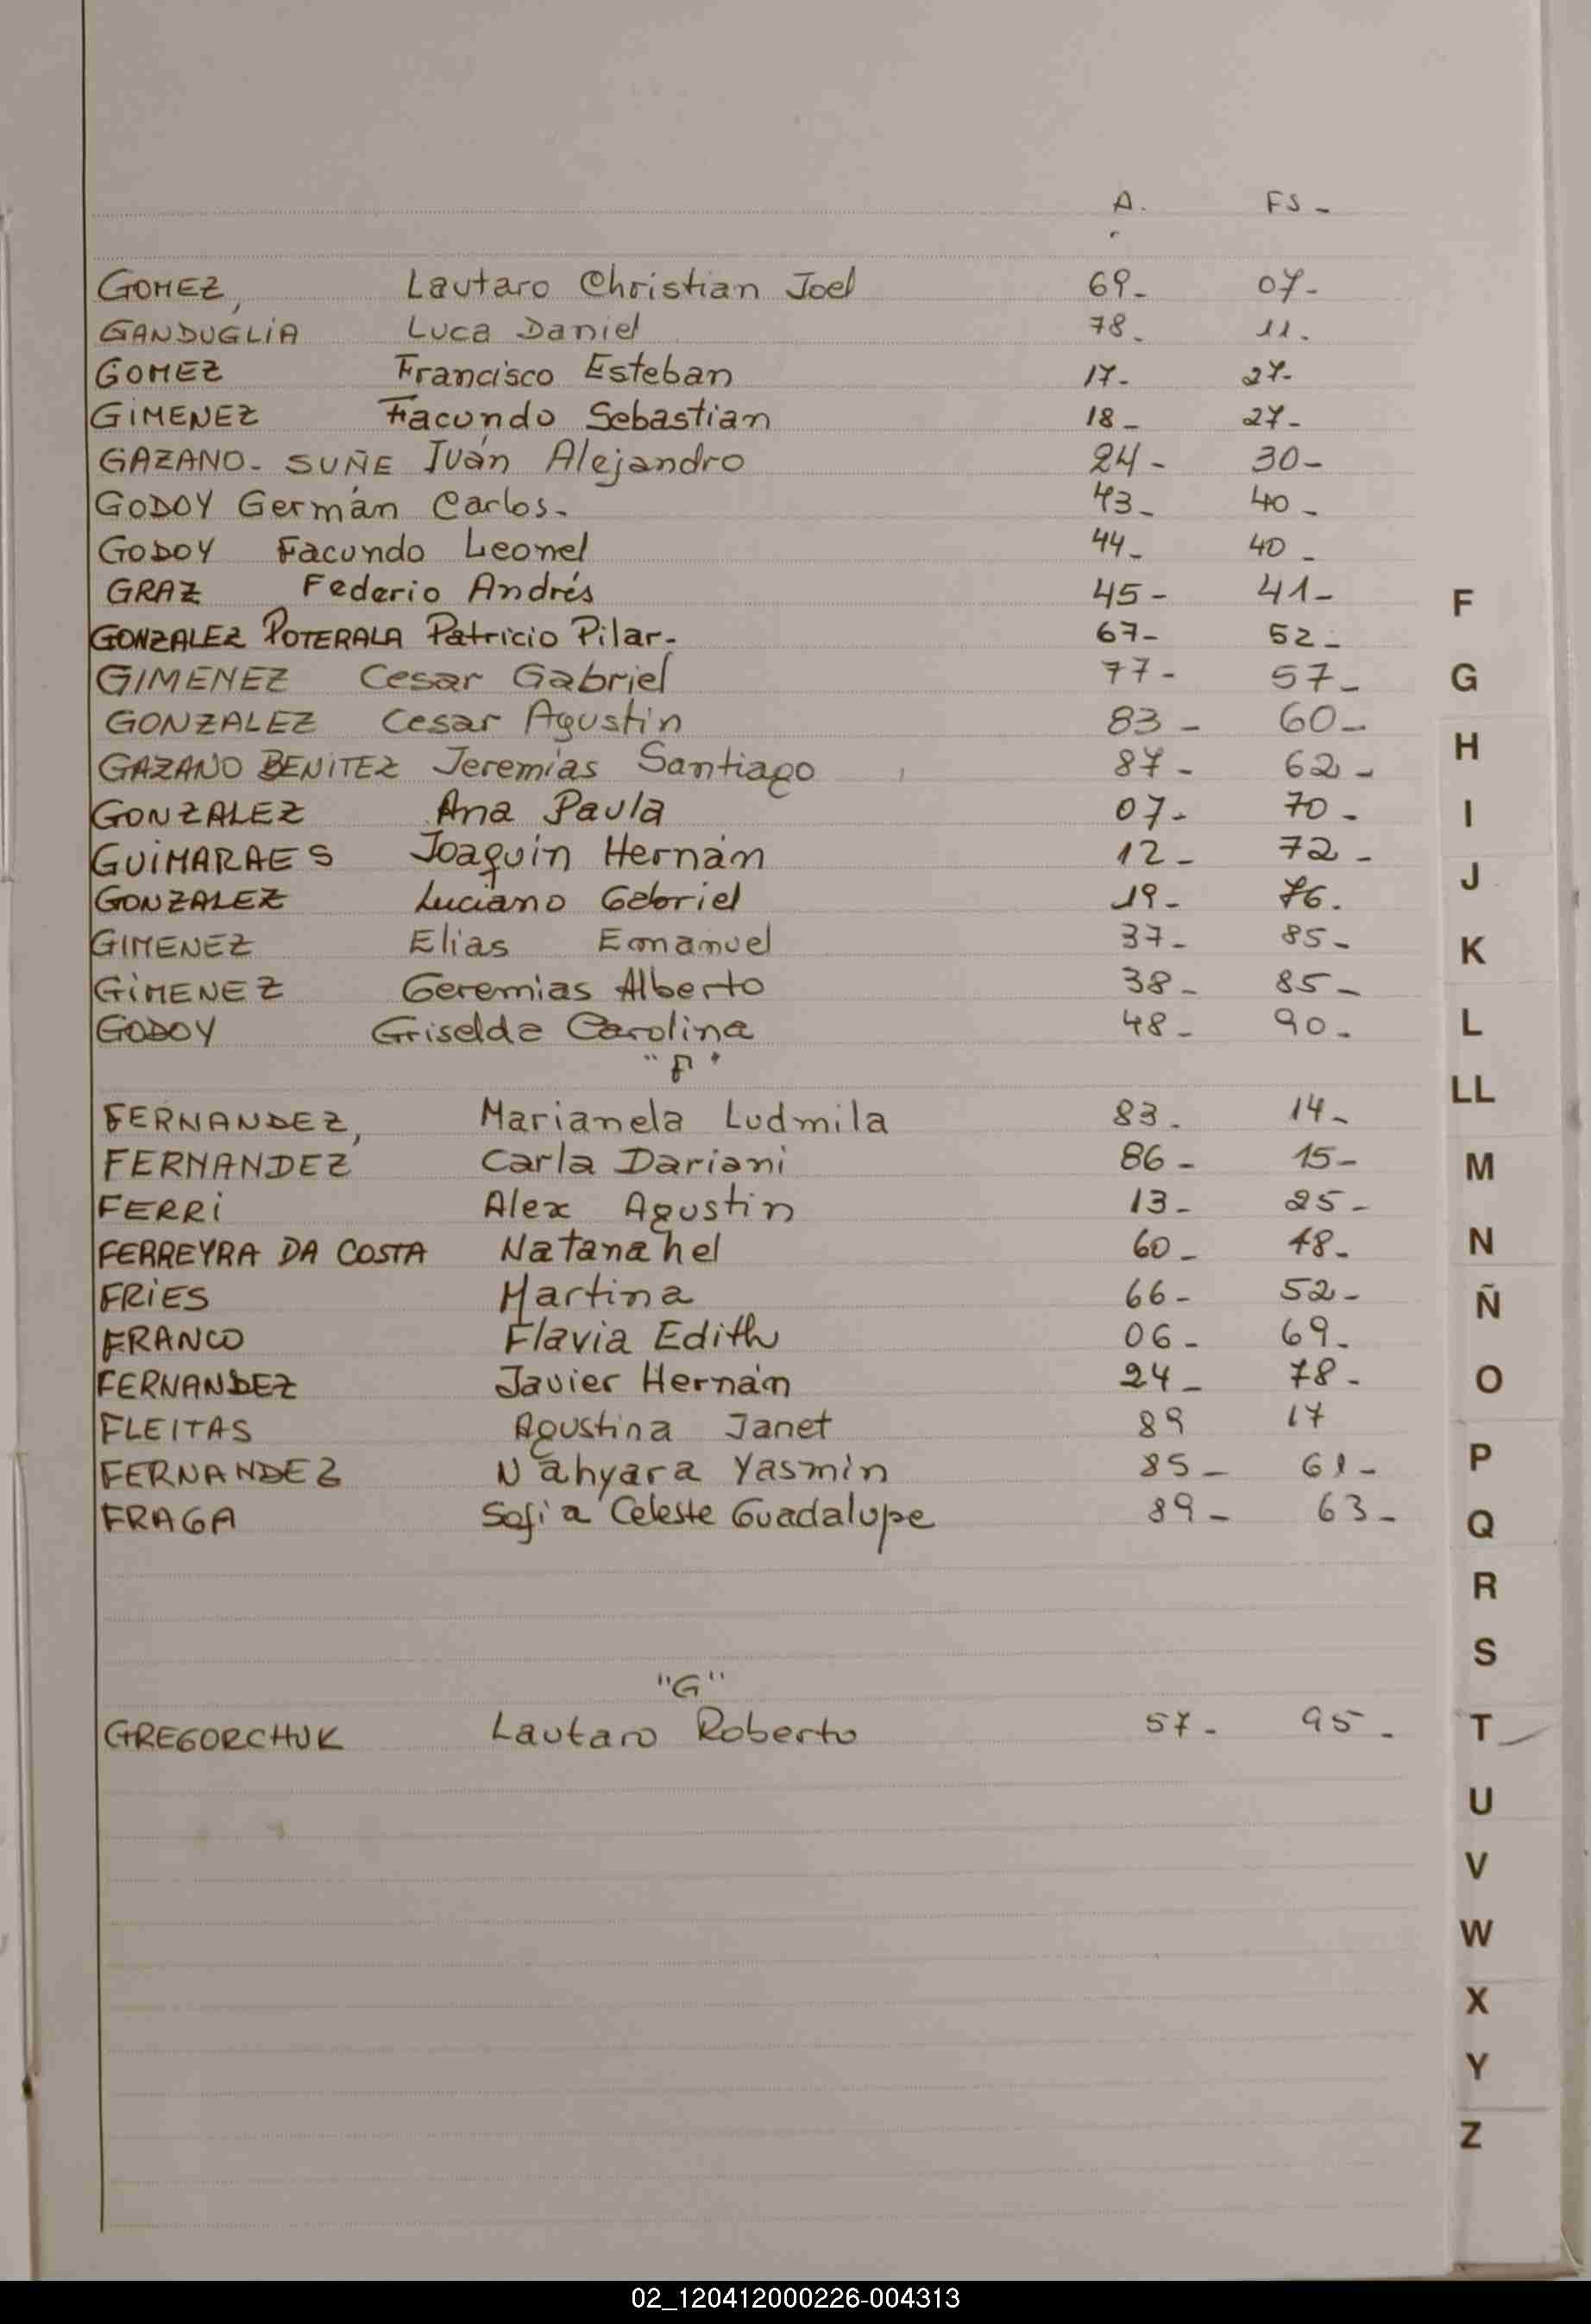 A. FS-
GOMEZ, Lautaro Christian Joel 69- 07-
GANDUGLIA Luca Daniel 78- 11.
GOMEZ Francisco Esteban 17- 27-
GIMENEZ Facundo Sebastian 18- 27-
GAZANO- SUÑE Iván Alejandro 24- 30-
GODOY Germán Carlos- 43- 40-
GODOY Facundo Leonel 44- 40-
GRAZ Federio Andrés 45- 41-
GONZALEZ POTERALA Patricio Pilar- 67- 52-
GIMENEZ Cesar Gabriel 77- 57-
GONZALEZ Cesar Agustín 83- 60-
GAZANO BENITEZ Jeremías Santiago 87- 62-
GONZALEZ Ana Paula 07- 70-
GUIMARAES Joaquin Hernán 12- 72-
GONZALEZ Luciano Gabriel 19- 76.
GIMENEZ Elias Emanuel 37- 85-
GIMENEZ Geremias Alberto 38- 85-
GODOY Griselda Carolina 48- 90-
"F"
FERNANDEZ, Marianela Ludmila 83- 14-
FERNANDEZ Carla Dariani 86- 15-
FERRI Alex Agustin 13- 25-
FERREYRA DA COSTA Natanahel 60- 48-
FRIES Martina 66- 52-
FRANCO Flavia Edith 06- 69-
FERNANDEZ Javier Hernán 24- 78-
FLEITAS Agustina Janet 89 17
FERNANDEZ Nahyara Yasmin 85- 61-
FRAGA Sofia Celeste Guadalupe 89- 63-
"G"
GREGORCHUK Lautaro Roberto 57- 95-
F
G
H
I
J
K
L
LL
M
N
Ñ
O
P
Q
R
S
T
U
V
W
X
Y
Z
02_120412000226-004313